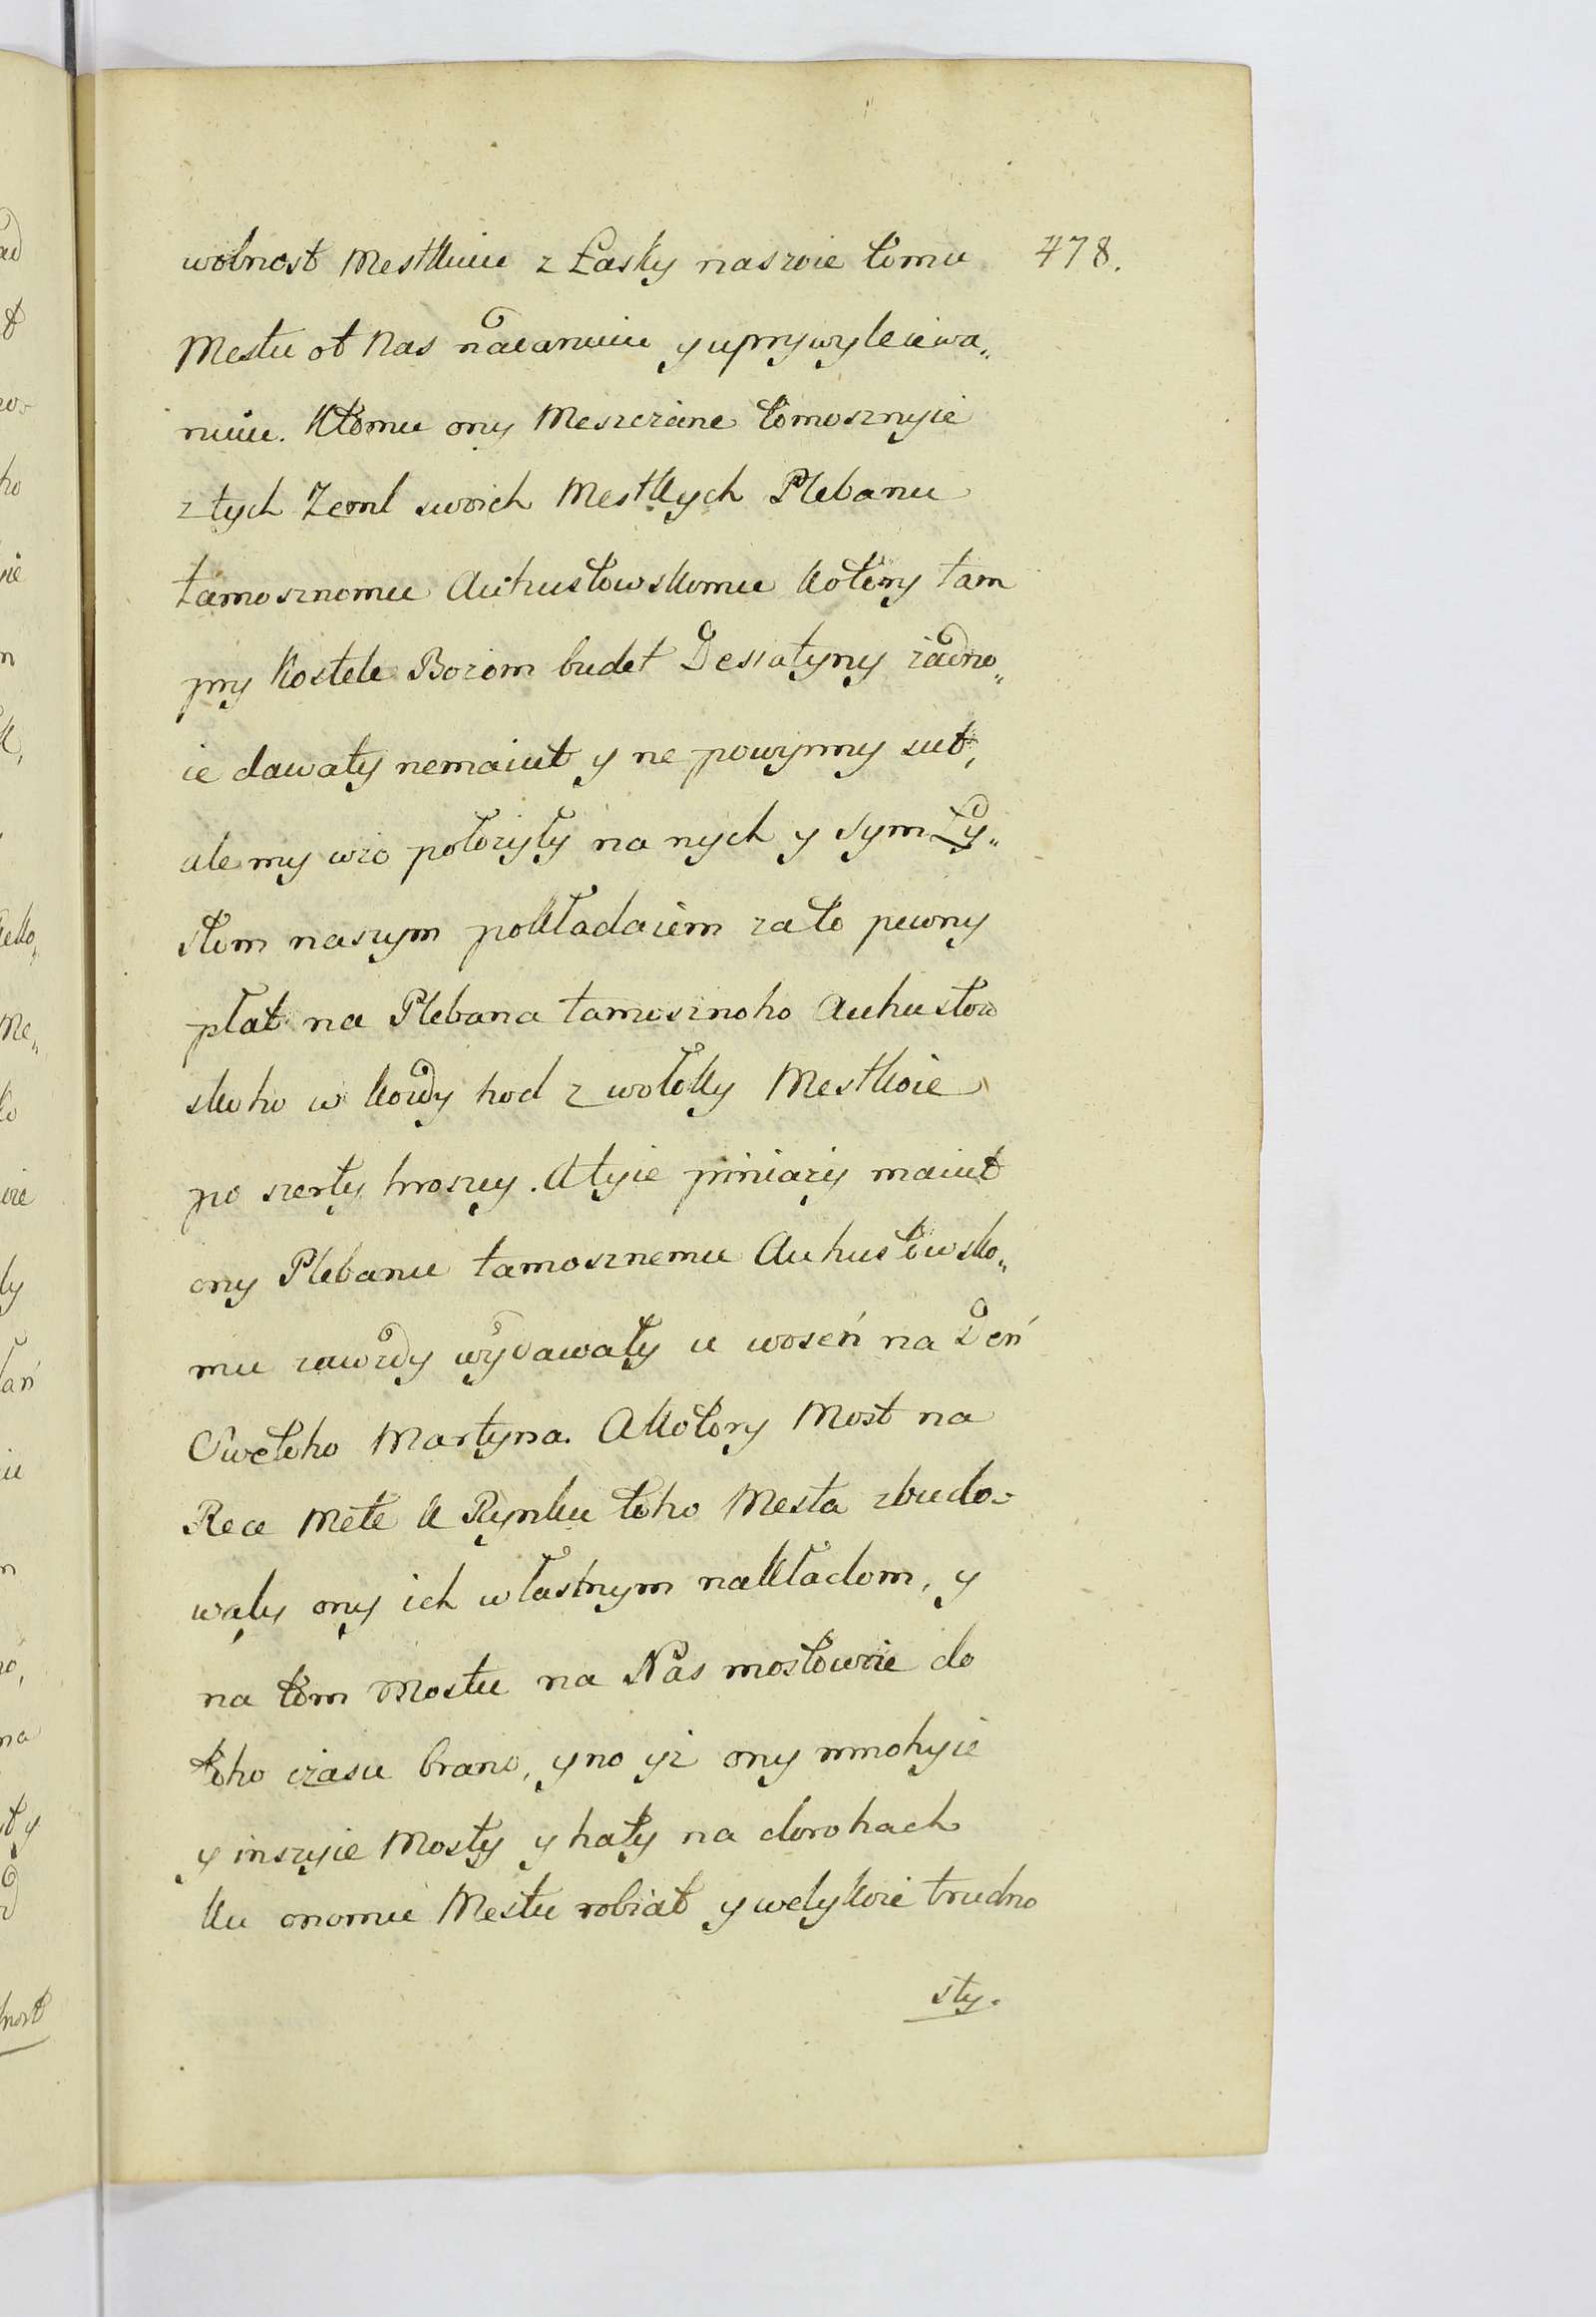 wolnost Mestkuiu z Łasky naszoie tomu 478.
Mestu ot Nas nadanuiu y uprywylewia„
nuiu. Ktomu ony Meszczane tomosznyie
z tych Zeml swoich Mestkych Plebanu
tamosznomu Auhustowskomu kotory tam
pry Kostele Bozom budet Desiatyny żadno„
ie dawaty nemaiut y ne powynny sut,
ale my wżo położyły na nych y sym Ły„
stom naszym pokładaiem za to pewny
płat na Plebana tamosznoho Auhustow
skoho w kozdy hod z wołoky Mestkoie
po szesty hroszey. A tyie piniazy maiut
ony Plebanu tamosznemu Auhustowsko„
mu zawzdy wydawaty u woseń na Deń
Swetoho Martyna. A kotory Most na
Rece Mete k Rynku toho Mesta zbudo-
waly ony ich własnym nakładom, y
na tom Mostu na Nas mostowoie do
toho czasu brano, yno yż ony mnohyie
y inszyie Mosty y haty na dorohach
ku onomu Mestu robiat y welykoie trudno
sty.
ad
t
ho
ie
n
Me„
ie
ly
tań
iu
n
na
ty
nost